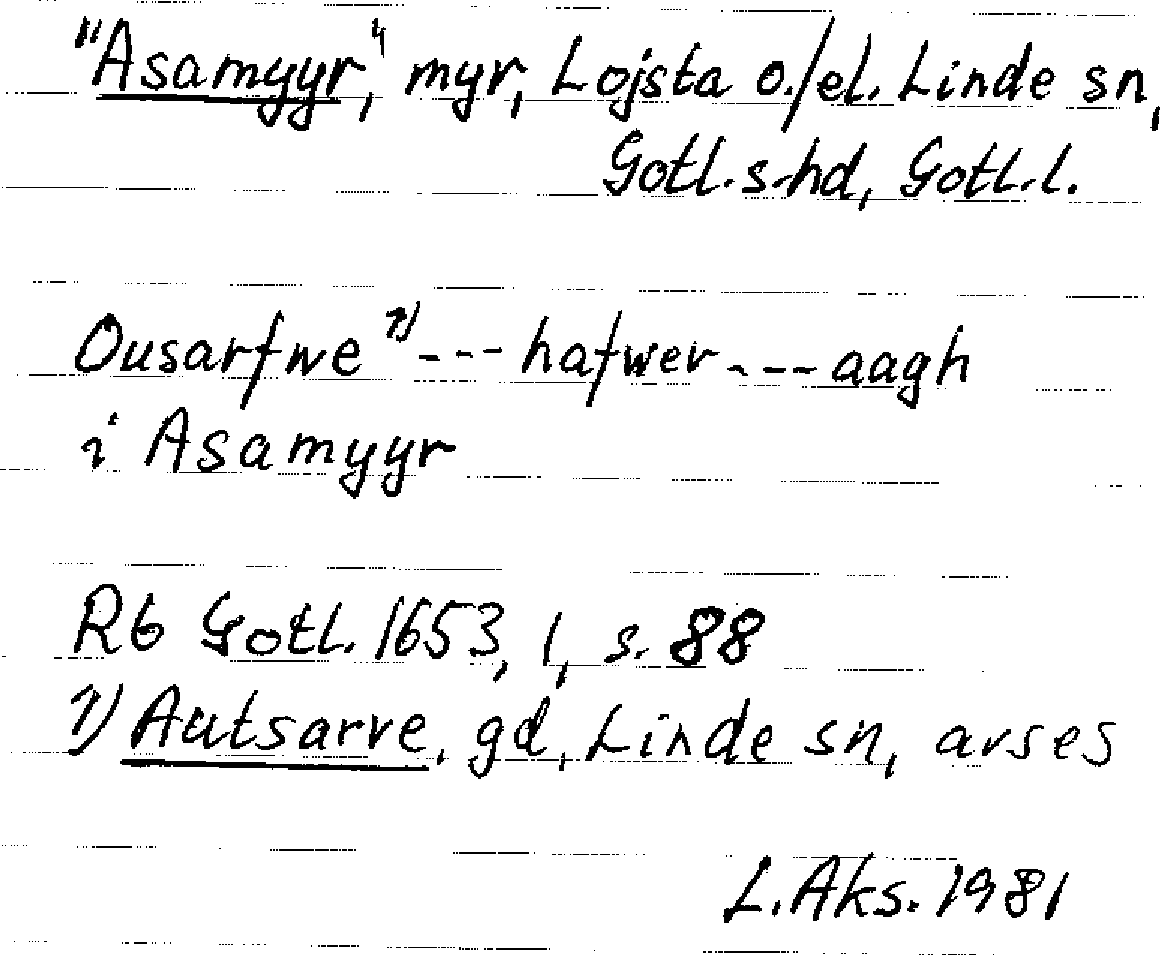 "Asamyyr", myr, Lojsta o./el. Linde sn,
Gotl. s. hd, Gotl. l.
Ousarfwe 1) --- hafwer --- aagh
i Asamyyr
Rb Gotl. 1653, 1, s. 88
1) Autsarve, gd, Linde sn, avses
L. Aks. 1981